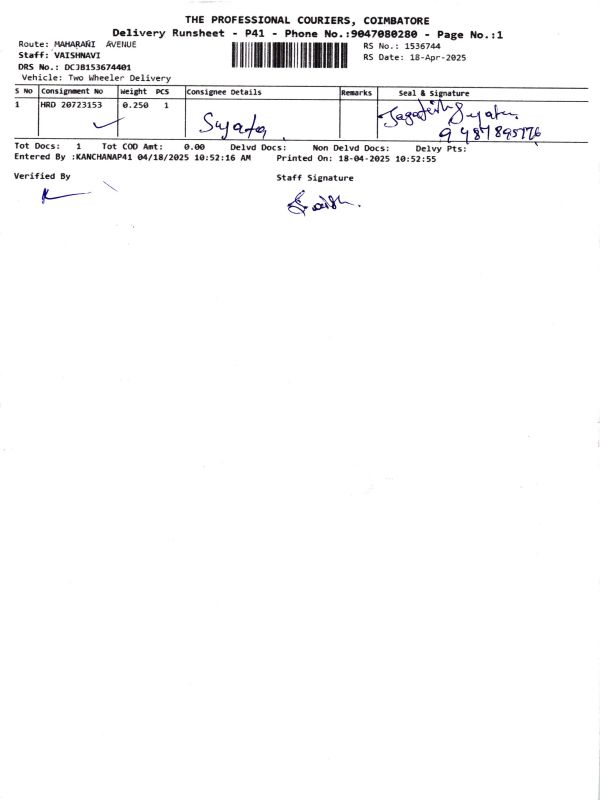 THE PROFESSIONAL COURIERS, COIMBATORE
Delivery Runsheet - P41 - Phone No.:9047080280 - Page No.:1
Route: MAHARANI AVENUE
RS No.: 1536744
Staff: VAISHNAVI
RS Date: 18-Apr-2025
DRS No.: DCJB153674401
Vehicle: Two Wheeler Delivery
S No Consignment No Weight PCS Consignee Details Remarks Seal & Signature
1 HRD 20723153 0.250 1
Sujata
9487895776
Tot Docs: 1 Tot COD Amt: 0.00 Delvd Docs: Non Delvd Docs: Delvy Pts:
Entered By :KANCHANAP41 04/18/2025 10:52:16 AM Printed On: 18-04-2025 10:52:55
Verified By Staff Signature